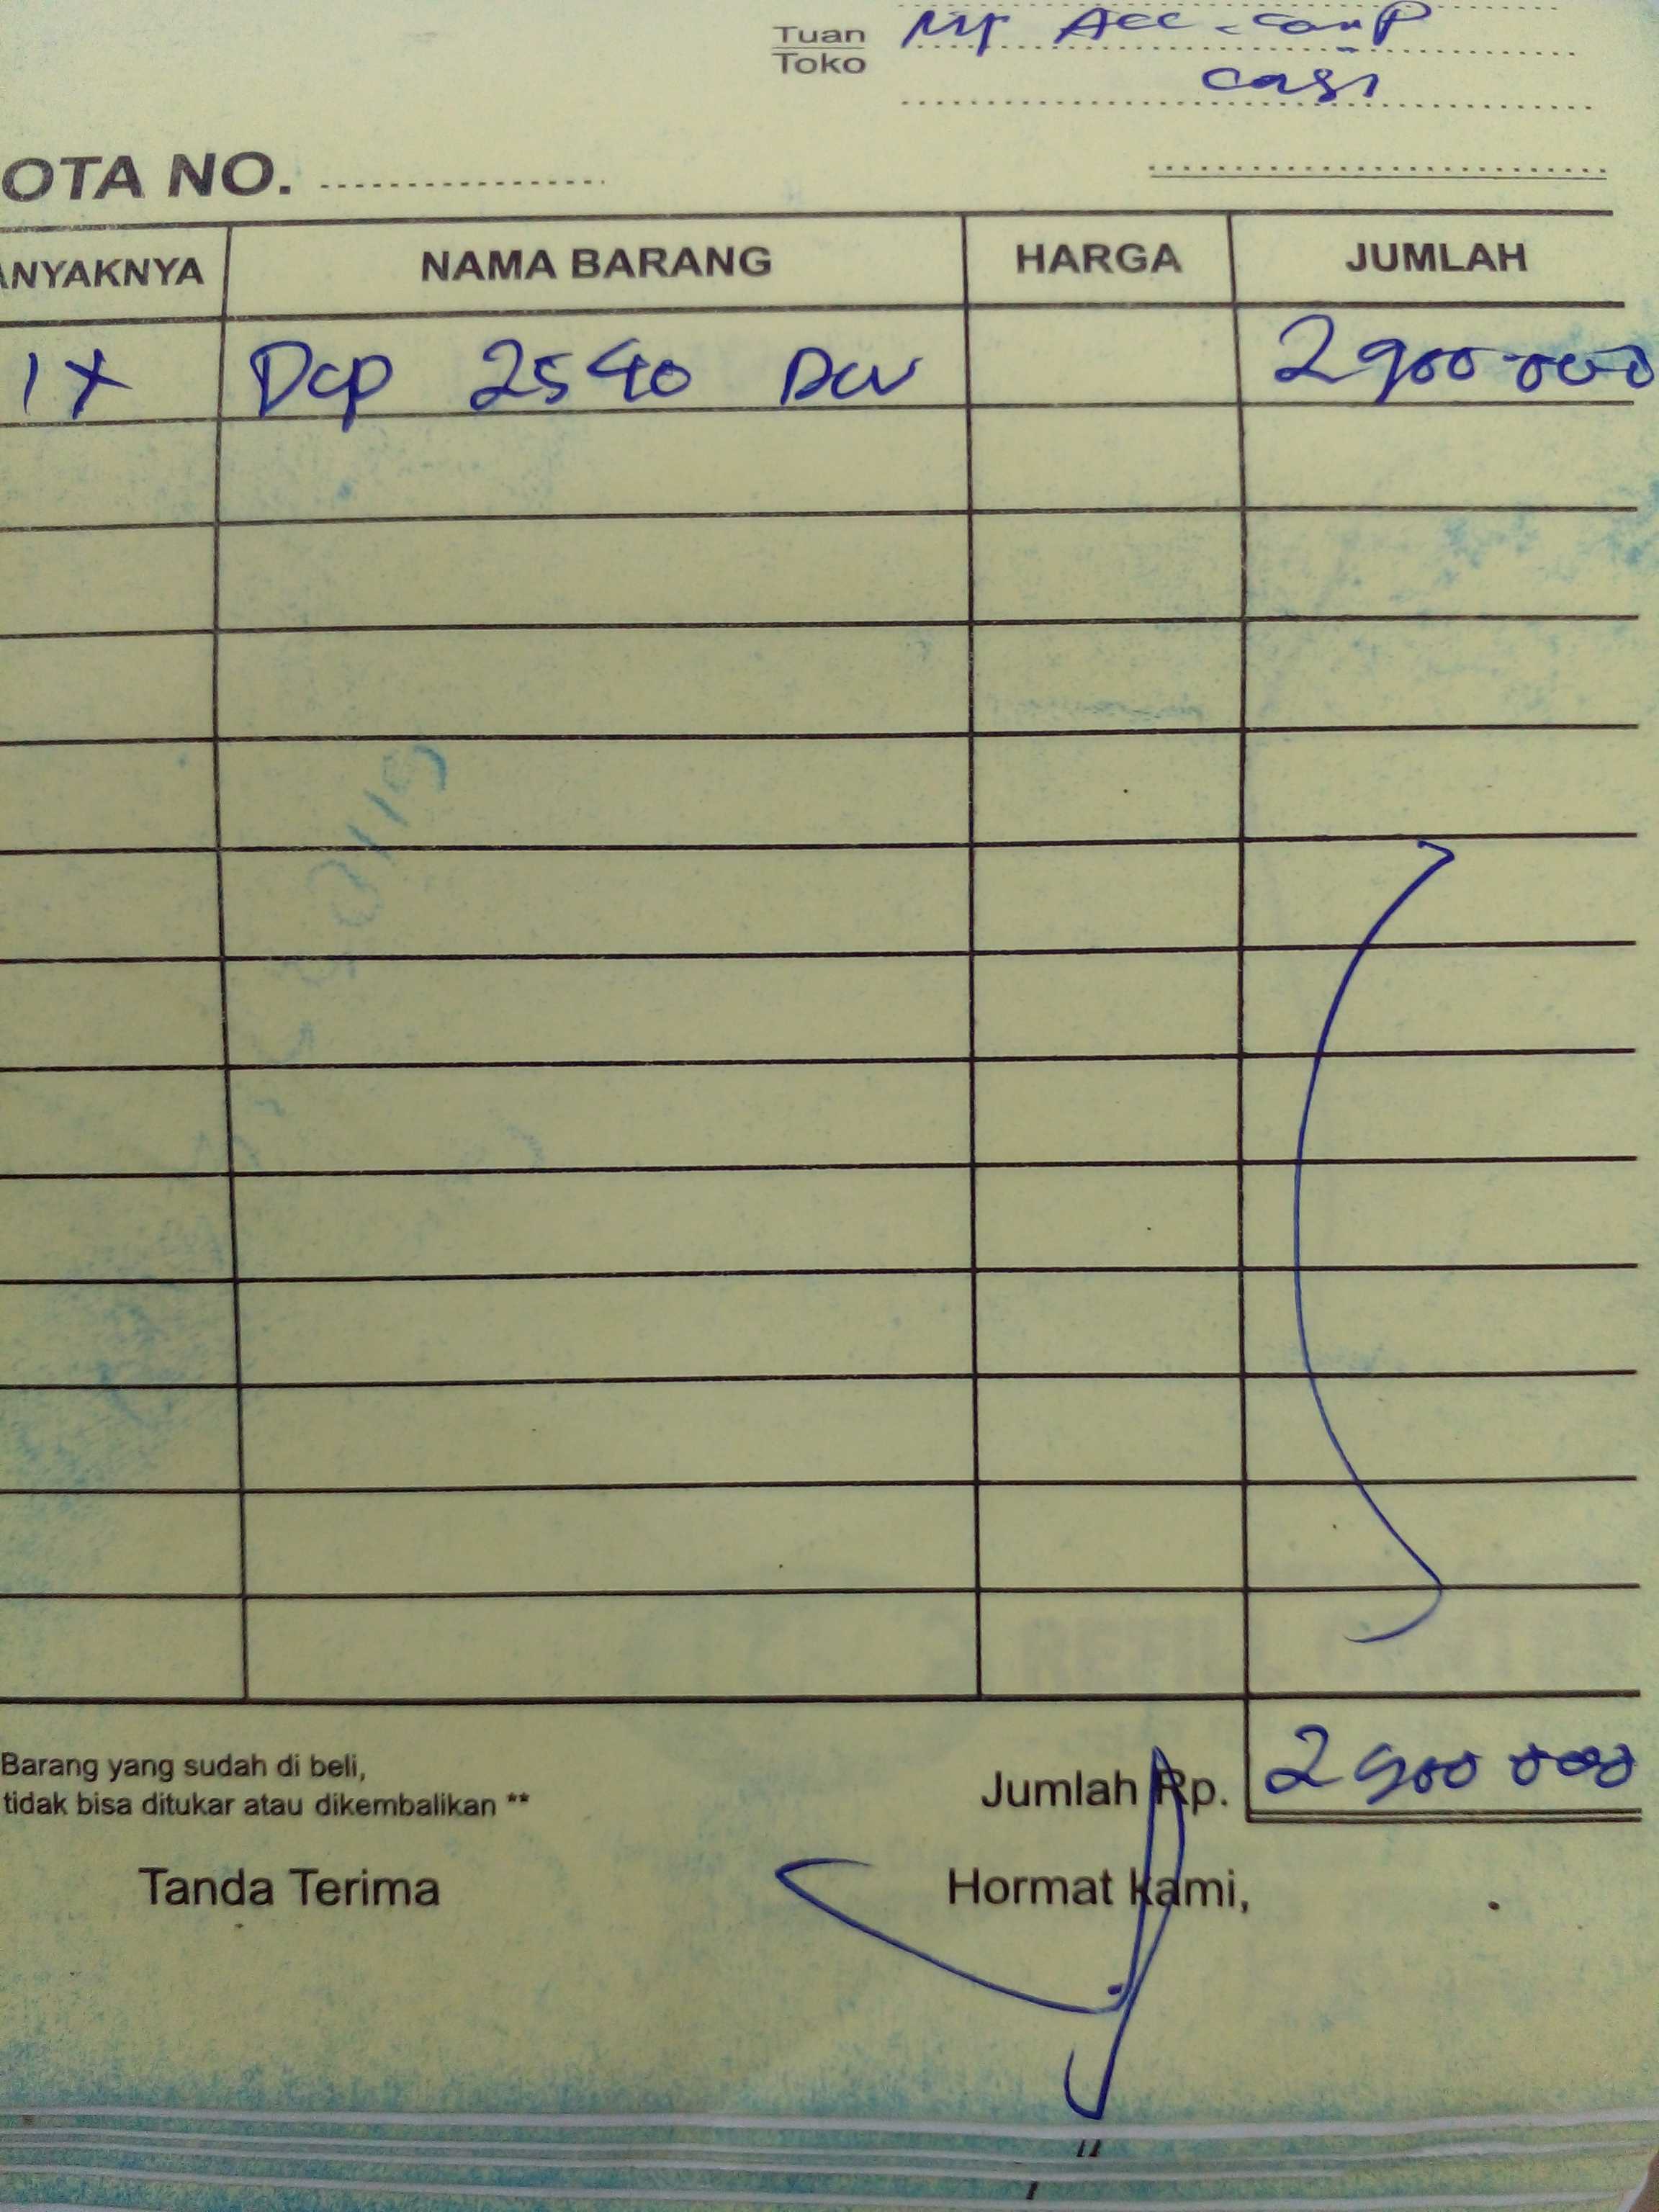 Tuan My Acc-comp
Toko cash
OTA NO.
ANYAKNYA NAMA BARANG HARGA JUMLAH
1x Dcp 2540 Dw 2900.000
Barang yang sudah di beli,
tidak bisa ditukar atau dikembalikan **
Jumlah Rp. 2900 000
Tanda Terima Hormat kami,